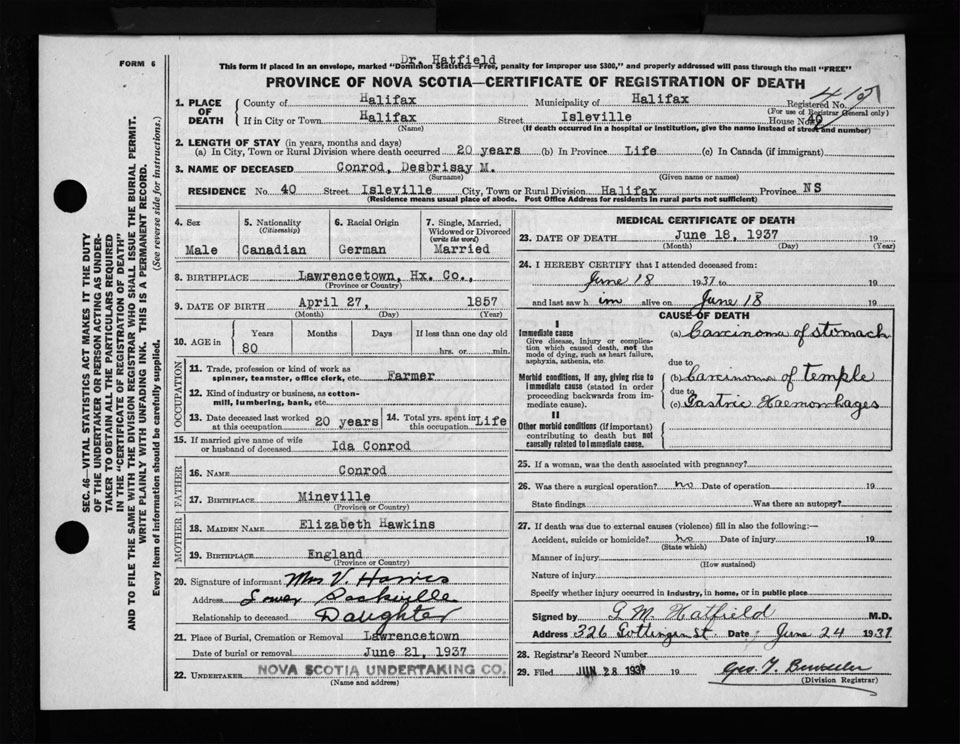 Dr. Hatfield
FORM 6
This form if placed in an envelope, marked "Dominion Statistics—Free, penalty for improper use $300," and properly addressed will pass through the mail "FREE"
PROVINCE OF NOVA SCOTIA—CERTIFICATE OF REGISTRATION OF DEATH
1. PLACE OF DEATH
County of Halifax Municipality of Halifax Registered No.
(For use of Registrar General only)
If in City or Town Halifax Street Isleville House No. 40
(Name) (If death occurred in a hospital or institution, give the name instead of street and number)
2. LENGTH OF STAY (in years, months and days)
(a) In City, Town or Rural Division where death occurred 20 years (b) In Province Life (c) In Canada (if immigrant)
3. NAME OF DECEASED Conrod, Desbrisay M.
(Surname) (Given name or names)
RESIDENCE No. 40 Street Isleville City, Town or Rural Division Halifax Province NS
(Residence means usual place of abode. Post Office Address for residents in rural parts not sufficient)
4. Sex
Male
5. Nationality
(Citizenship)
Canadian
6. Racial Origin
German
7. Single, Married, Widowed or Divorced
(write the word)
Married
8. BIRTHPLACE Lawrencetown, Hx. Co.,
(Province or Country)
9. DATE OF BIRTH April 27, 1857
(Month) (Day) (Year)
10. AGE in
Years Months Days If less than one day old
80 hrs. or min.
OCCUPATION
11. Trade, profession or kind of work as
spinner, teamster, office clerk, etc. Farmer
12. Kind of industry or business, as cotton-
mill, lumbering, bank, etc.
13. Date deceased last worked
at this occupation 20 years
14. Total yrs. spent in
this occupation Life
15. If married give name of wife
or husband of deceased Ida Conrod
FATHER
16. NAME Conrod
17. BIRTHPLACE Mineville
(Province or Country)
MOTHER
18. MAIDEN NAME Elizabeth Hawkins
19. BIRTHPLACE England
(Province or Country)
20. Signature of informant Mrs V. Harris
Address Lower Sackville
Relationship to deceased Daughter
21. Place of Burial, Cremation or Removal Lawrencetown
Date of burial or removal June 21, 1937
22. UNDERTAKER NOVA SCOTIA UNDERTAKING CO.
(Name and address)
MEDICAL CERTIFICATE OF DEATH
23. DATE OF DEATH June 18, 1937 19
(Month) (Day) (Year)
24. I HEREBY CERTIFY that I attended deceased from:
June 18 1937 to 19
and last saw him alive on June 18 19
CAUSE OF DEATH
I
Immediate cause
Give disease, injury or complica-
tion which caused death, not the
mode of dying, such as heart failure,
asphyxia, asthenia, etc.
(a) Carcinoma of stomach
due to
Morbid conditions, if any, giving rise to
immediate cause (stated in order
proceeding backwards from im-
mediate cause).
(b) Carcinoma of temple
due to
(c) Gastric Haemorrhages
II
Other morbid conditions (if important)
contributing to death but not
causally related to immediate cause.
25. If a woman, was the death associated with pregnancy?
26. Was there a surgical operation? no Date of operation 19
State findings Was there an autopsy?
27. If death was due to external causes (violence) fill in also the following:—
Accident, suicide or homicide? no Date of injury 19
(State which)
Manner of injury
(How sustained)
Nature of injury
Specify whether injury occurred in industry, in home, or in public place
Signed by G M. Hatfield M.D.
Address 326 Gottingen St. Date June 24 1937
28. Registrar's Record Number
29. Filed JUN 28 1937 19
(Division Registrar)
SEC. 46—VITAL STATISTICS ACT MAKES IT THE DUTY
OF THE UNDERTAKER OR PERSON ACTING AS UNDER-
TAKER TO OBTAIN ALL THE PARTICULARS REQUIRED
IN THE "CERTIFICATE OF REGISTRATION OF DEATH"
AND TO FILE THE SAME WITH THE DIVISION REGISTRAR WHO SHALL ISSUE THE BURIAL PERMIT.
WRITE PLAINLY WITH UNFADING INK. THIS IS A PERMANENT RECORD.
Every item of information should be carefully supplied. (See reverse side for instructions.)